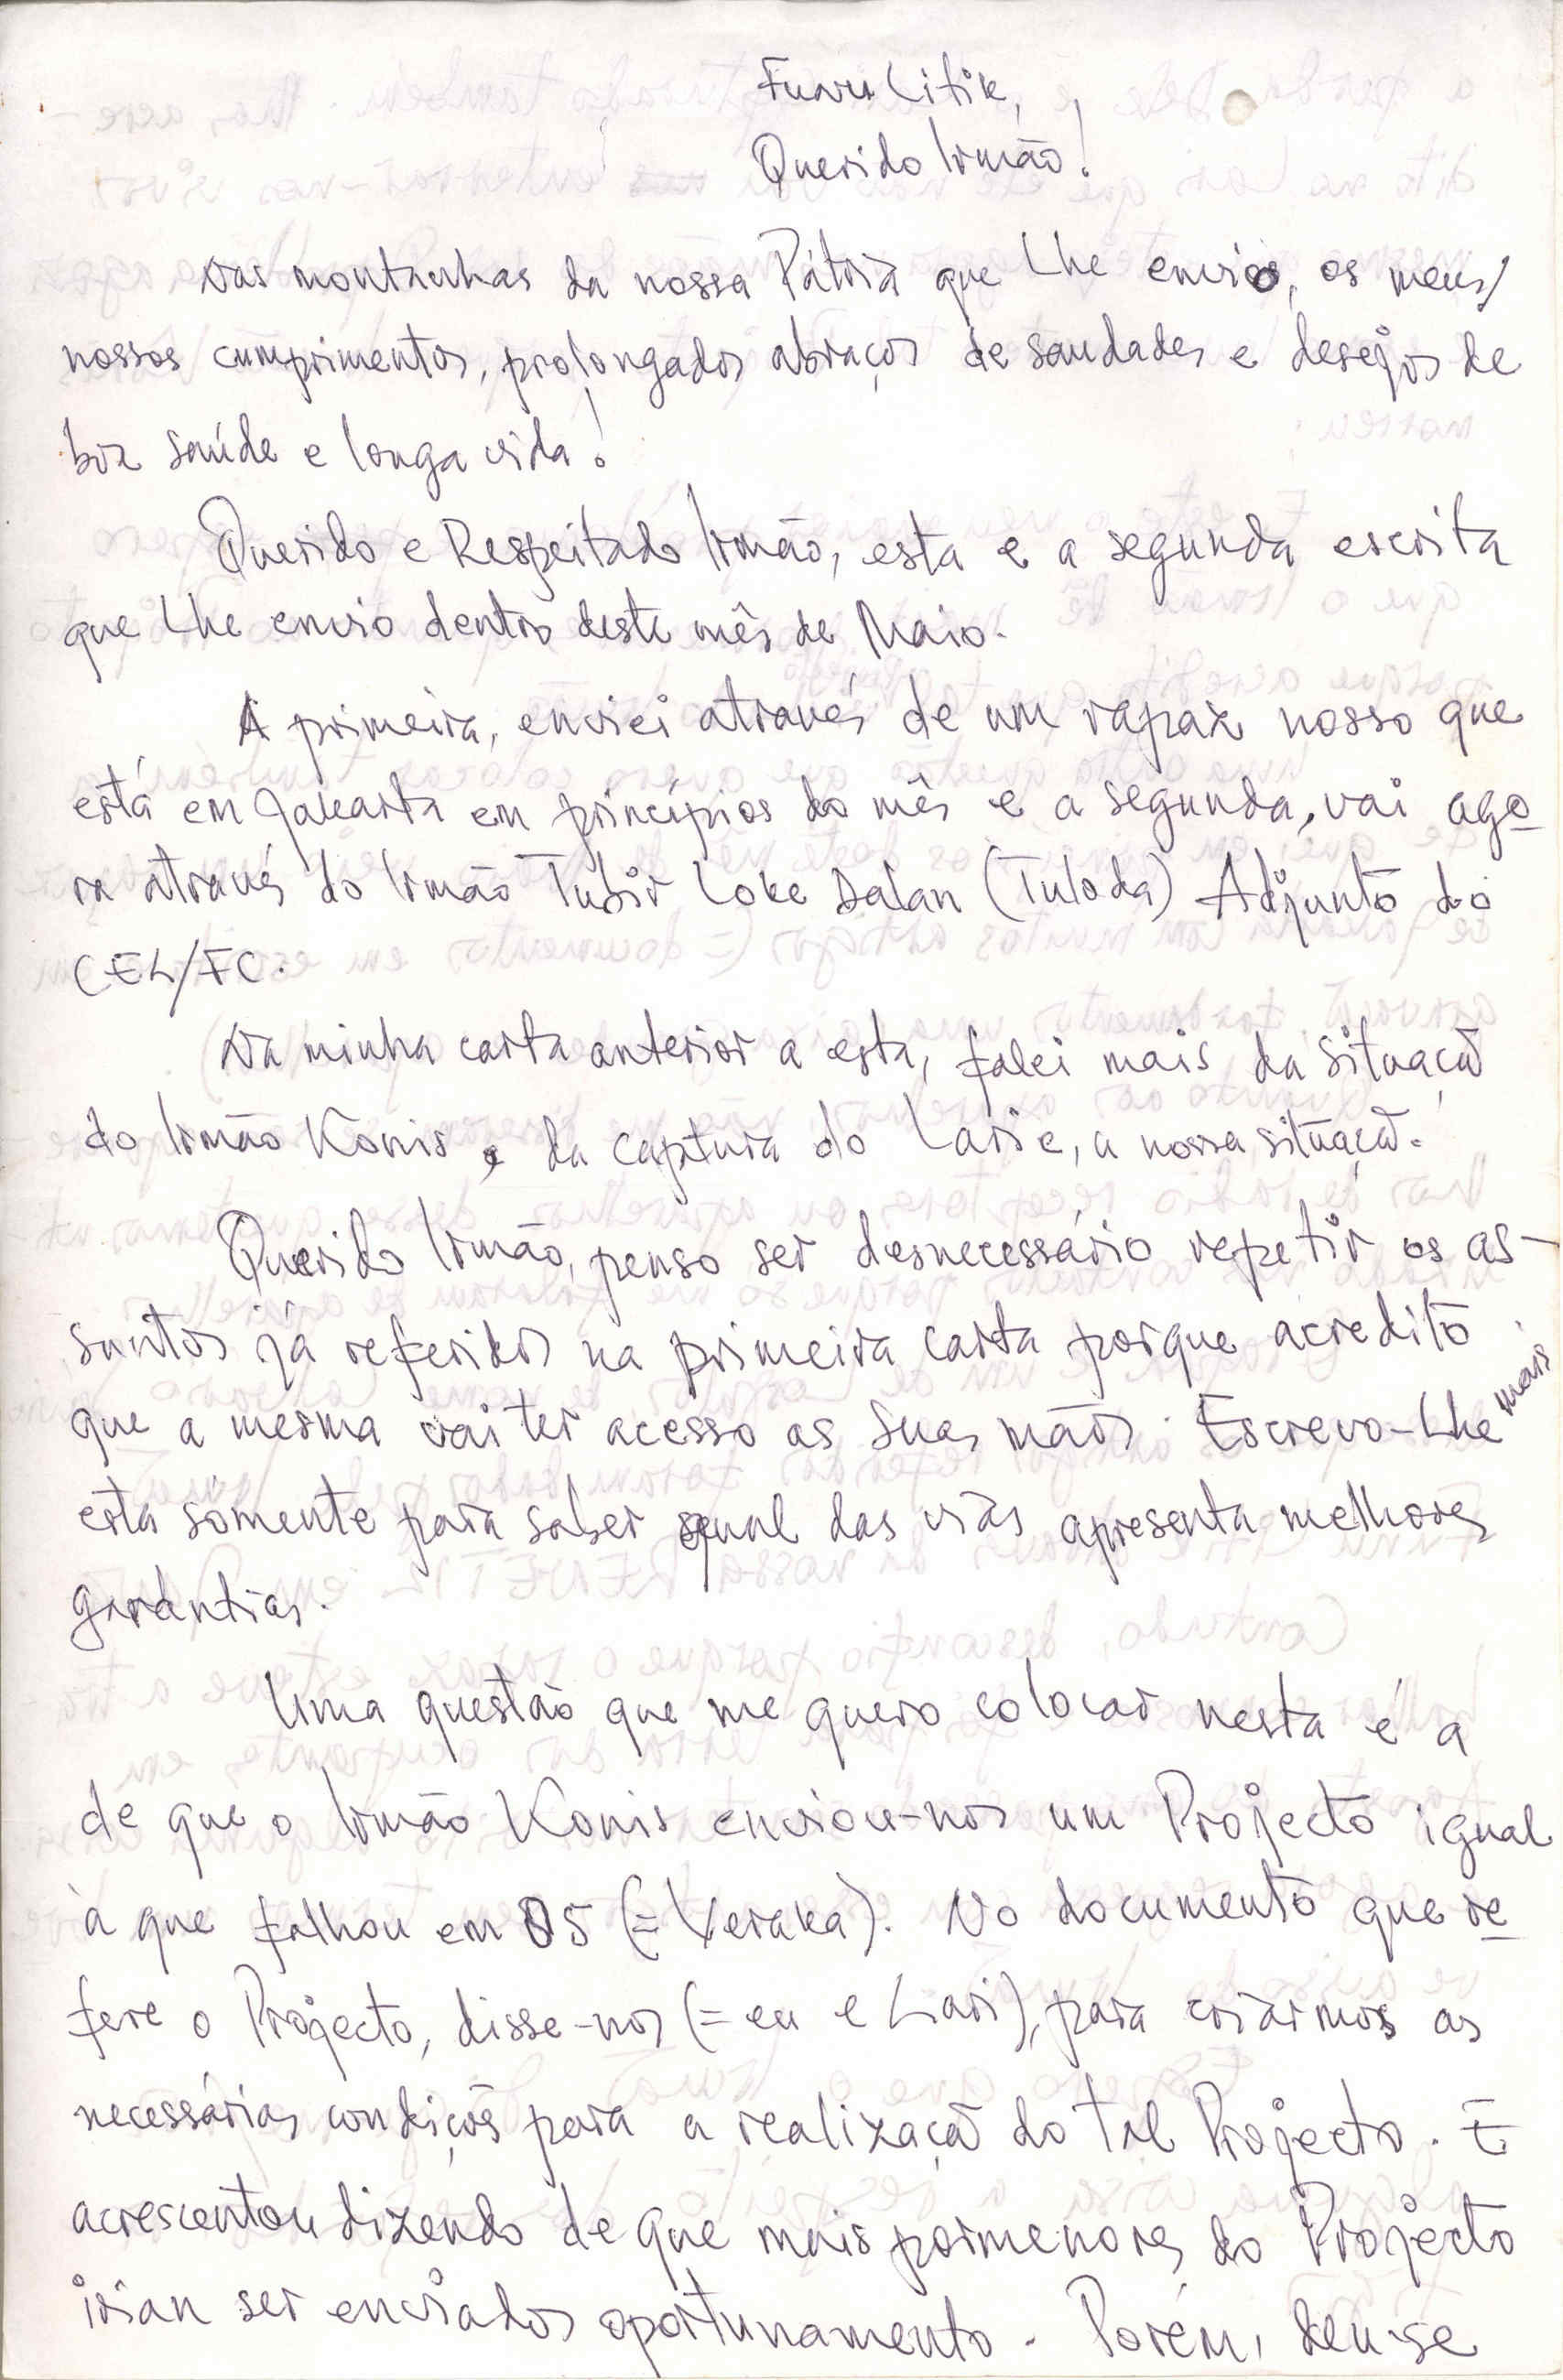 Funu Litik,
Querido Irmão!
Nas montanhas da nossa Pátria que Lhe envio, os meus/
nossos cumprimentos, prolongados abraços de saudades e desejos de
boa saúde e longa vida!
Querido e Respeitado Irmão, esta e a segunda escrita
que Lhe envio dentro deste mês de Maio.
A primeira, enviei através de um rapaz nosso que
está em Jakarta em princípios do mês e a segunda, vai ago-
ra através do Irmão Tubir Loke Dalan (Tuloda) Adjunto do
CEL/FC.
Na minha carta anterior a esta, falei mais da situaçã
do Irmão Konis e da captura do Lari e, a nossa situaçã.
Querido Irmão, penso ser desnecessário repetir os as-
suntos já referidos na primeira carta porque acredito
que a mesma vai ter acesso as Suas mãos. Escrevo-Lhe mais
esta sómente para saber qual das vias apresenta melhores
garantias.
Uma questão que me quero colocar nesta é a
de que o Irmão Konis enviou-nos um Projecto igual
à que falhou em 05 (= Veraka). No documento que re-
fere o Projecto, disse-nos (= eu e Lari), para criarmos as
necessárias condições para a realizaçã do tal Projecto. E
acrescentou dizendo de que mais pormenores do Projecto
irian ser enviados oportunamento. Porém, deu-se